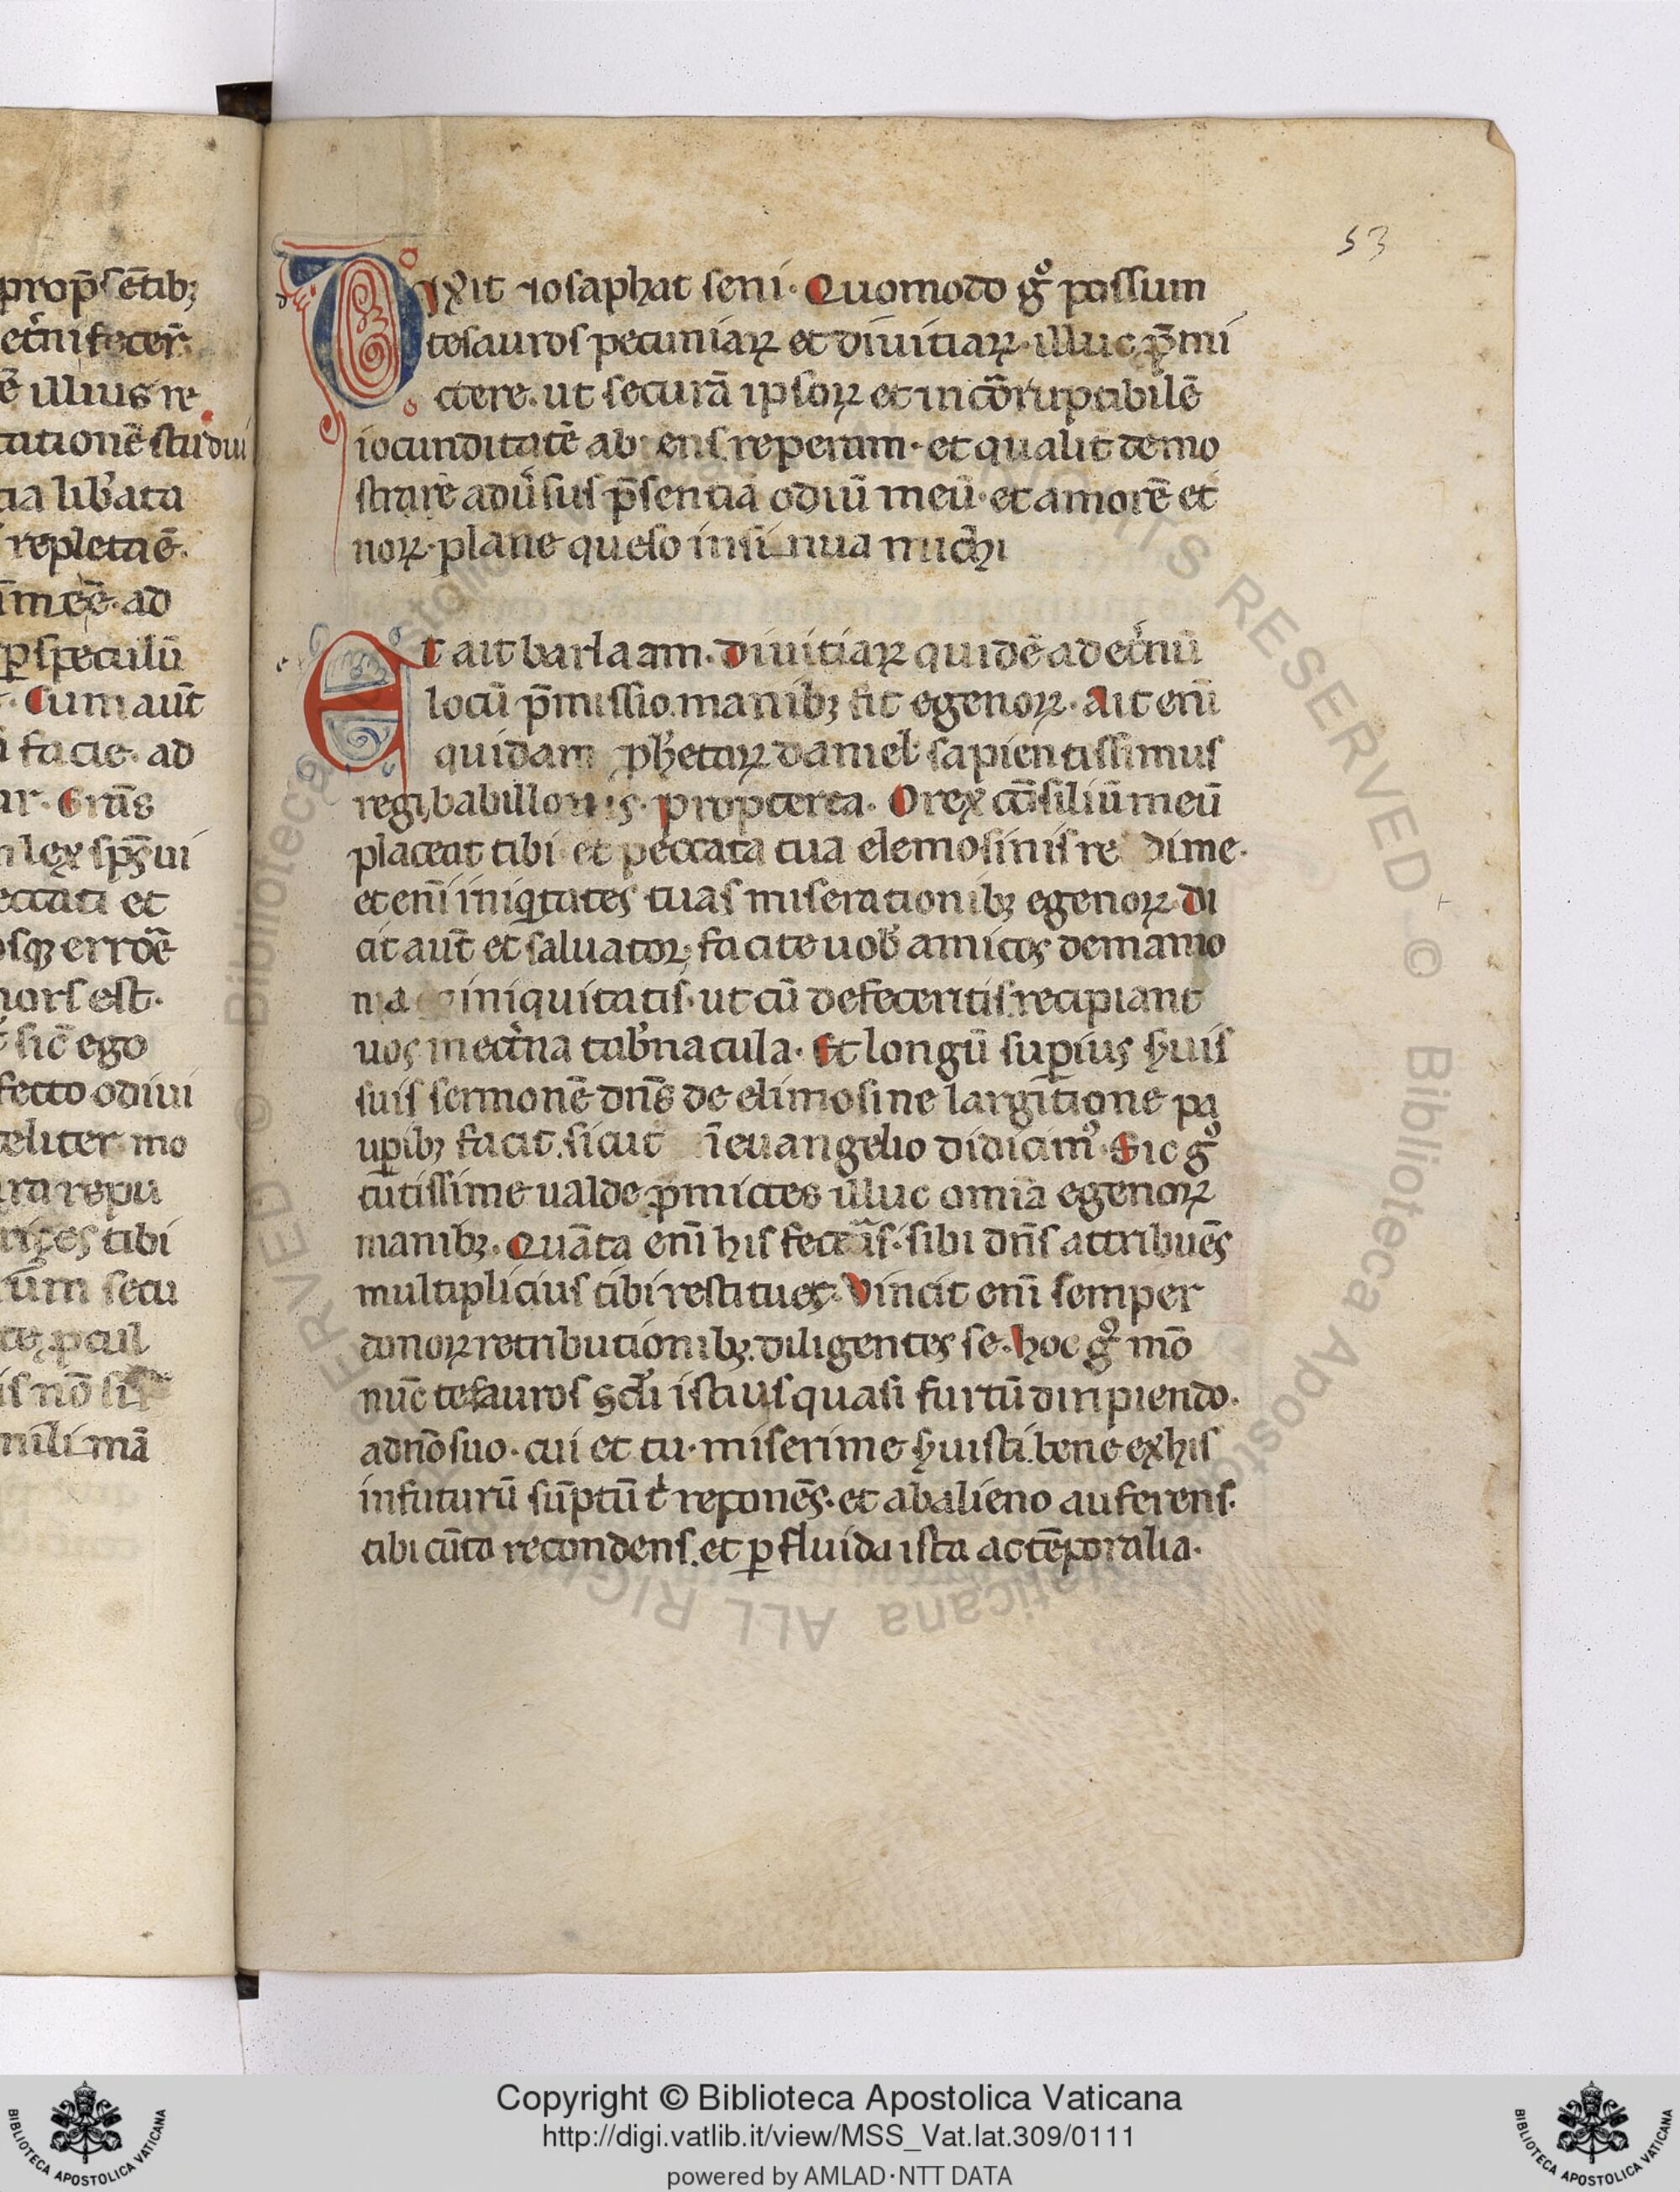 prop̄sētibꝫ
et̉nifecer̄
ē illius re
tationē studui
tia lib̉ata
repletaē.
īm eē. ad
ꝑ speculū
Cum aut̄
facie. ad
ar. Grās
lex sp̄s ui
eccati et
osqꝫ erroē
mors est.
sic̄ ego
fecto odiui
teliter mo
ara repu
tibi
rum secu
te. ꝓcul
is nō sit
mili mā
53
Dixit iosaphat seni. Quomodo gͦ possum
tesauros pecuniaꝝ et diuitiaꝝ. illuc p̄mi
ctere. ut securā ipsoꝝ et incōruptibilē
iocunditatē abiens reperiam. et qualit̄ demo
strare adu̓sus p̄sentia odiū meū. et amorē et
noꝝ. plane queso insinua michi
Et ait barlaam. Diuitiaꝝ quidē ad et̓nū
locū p̄missio manibꝫ fit egenoꝝ. Ait eni̅
quidam ꝓph̓etaꝝ daniel. sapientissimus
regi babillonis. propterea. O rex cōsiliū meū
placeat tibi et peccata tua elemosinis redime.
et eni̅ iniqͥtates tuas miserationibꝫ egenoꝝ. Di
cit aut̄ et saluator. facite uob̓ amicos demamo
na iniquitatis. ut cū defeceritis recipiant
uos in et̓na tab̓nacula. Et longū superius huis
suis sermonē dn̄s de elimosine largitione pa
uꝑibꝫ facit. sicut ī euangelio didicimꝰ. Sic gͦ
tutissime ualde p̄mictes illuc omīa egenoꝝ
manibꝫ. Quāta eni̅ his feceris. sibi dn̄s attribuēs
multiplicius tibi restituet. Vincit eni̅ semper
donoꝝ retributionibꝫ. diligentes se. hoc gͦ mō
nūc tesauros scl̓i istius quasi furtū diripiendo.
a dn̄o suo. cui et tu. miserime huisti. bene ex his
in futurū sūptū t̉ reponēs. et ab alieno auferens.
tibi cūta recondens. et ꝑ fluida ista ac tēporalia.
Copyright © Biblioteca Apostolica Vaticana
http://digi.vatlib.it/view/MSS_Vat.lat.309/0111
powered by AMLAD·NTT DATA
BIBLIOTECA APOSTOLICA VATICANA
BIBLIOTECA APOSTOLICA VATICANA